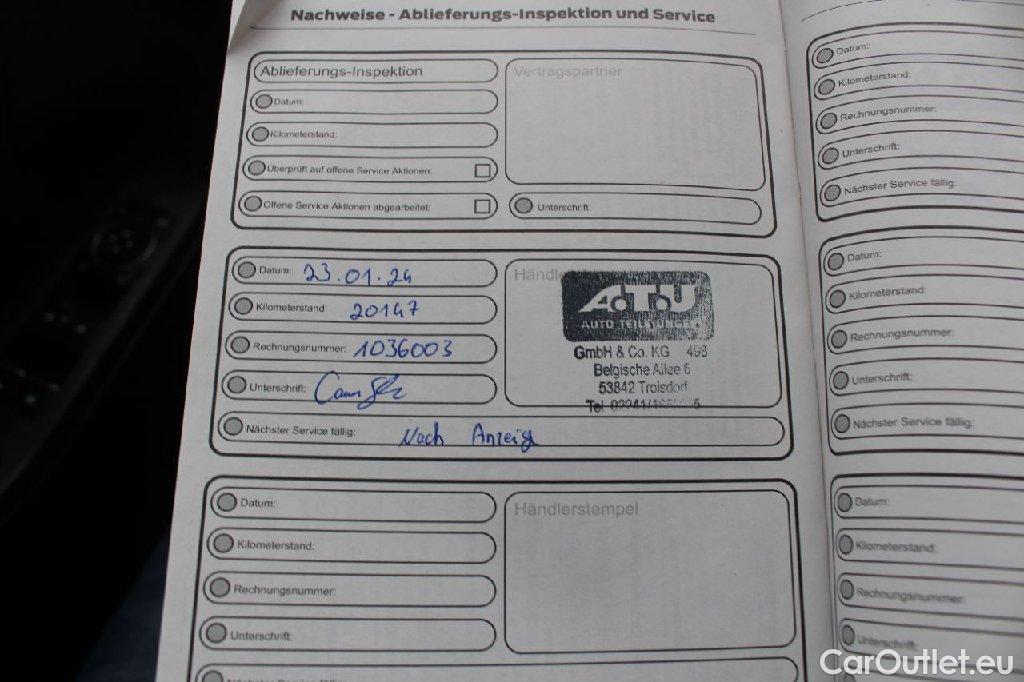 Nachweise - Ablieferungs-Inspektion und Service
Ablieferungs-Inspektion
Vertragspartner
Datum:
Kilometerstand:
Überprüft auf offene Service Aktionen:
Offene Service Aktionen abgearbeitet:
Unterschrift:
Datum: 23.01.24
Kilometerstand: 20147
Rechnungsnummer: 1036003
Unterschrift:
A.T.U
AUTO TEILE UNGER
GmbH & Co. KG 498
Belgische Allee 6
53842 Troisdorf
Tel.
Nächster Service fällig: Nach Anzeige
Datum:
Kilometerstand:
Rechnungsnummer:
Unterschrift:
Händlerstempel
Datum:
Kilometerstand:
Rechnungsnummer:
Unterschrift:
Nächster Service fällig:
Datum:
Kilometerstand:
Rechnungsnummer:
Unterschrift:
Nächster Service fällig:
Datum:
Kilometerstand:
Rechnungsnummer:
Unterschrift:
CarOutlet.eu